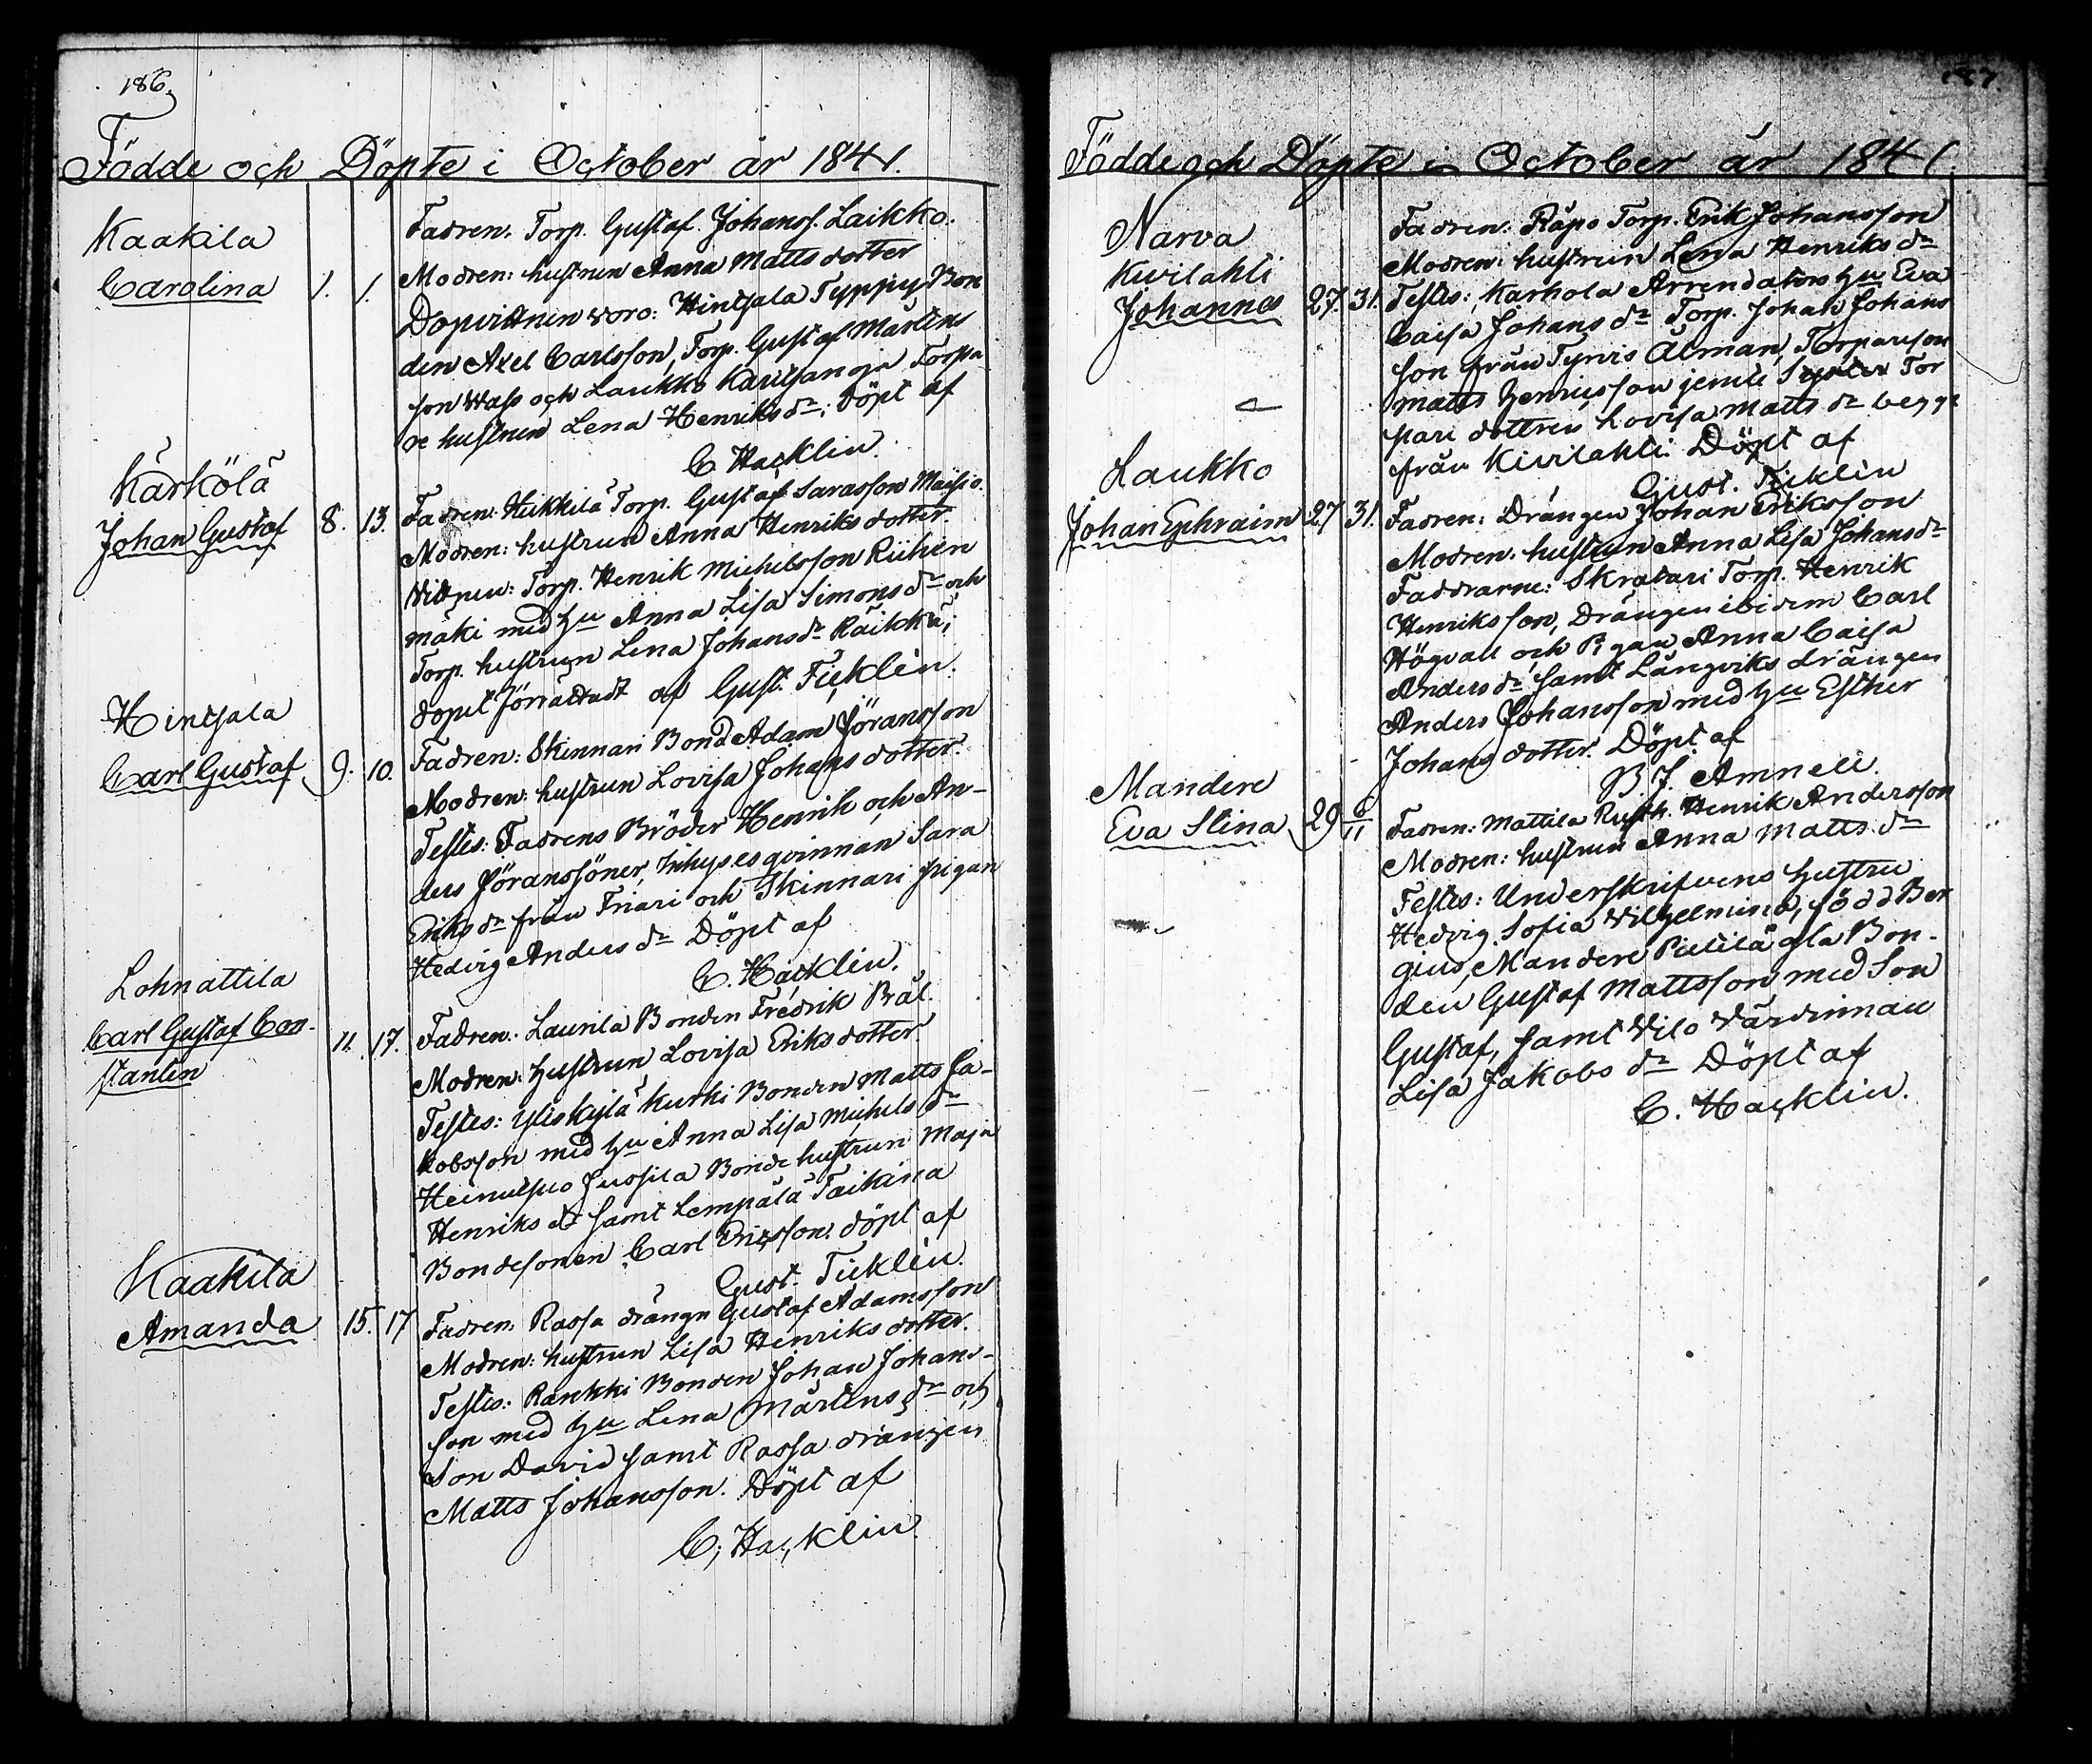 186.
Födde och Döpte i October år 1841.
Kaakila
Carolina 1. 1.
Fadren. Torp. Gustaf Johanss. Laikko.
Modren: hustrun Anna Matts dotter
Dopvittnen voro: Hinsala Typpy Bon
den Axel Carlsson, Torp. Gustaf Mårtens
son Wass och Laukko Torpa
re hustrun Lena Henriks dr; Döpt af
C Hacklin.
Kärkölä
Johan Gustaf 8. 13.
Fadren: Heikkilä Torp. Gustaf Sarasson Maisio.
Modren: hustrun Anna Henriks dotter.
Vittnen: Torp. Henrik Michelsson Riihen
mäki med hu Anna Lisa Simons dr och
Torp. hustrun Lena Johans dr Räikkä;
döpet förrättadt af Gust. Ticklén.
Hinsala
Carl Gustaf 9. 10.
Fadren: Skinnari Bond Adam Jöransson
Modren: hustrun Lovisa Johans dotter.
Testes: Fadrens Bröder Henrik och An-
ders Jöranssöner, Inhyses qvinnan Sara
Eriks dr från Friari och Skinnari pigan
Hedvig Anders dr Döpt af
C. Hacklin.
Lohnattila
Carl Gustaf Con-
stantin 11. 17.
Fadren: Laurila Bonden Fredrik Prål.
Modren: hustrun Lovisa Eriks dotter.
Testes: Yliskylä Kurki Bonden Matts Ja-
kobsson med hu Anna Lisa Michels dr
Heinulsuo Jussila Bonde hustrun Maja
Henriks dr samt Lempälä Taikina
Bondesonen Carl Ericsson. döpt af
Gust. Ticklén.
Kaakila
Amanda 15. 17
Fadren: Rassa drängn Gustaf Adamsson
Modren: hustrun Lisa Henriks dotter.
Testes: Rankki Bonden Johan Johans-
son med hu Lena Mårtens dr och
Son David samt Rassa drängen
Matts Johansson. Döpt af
C; Hacklin.
187.
Födde och Döpte i October år 1841.
Narva
Kivilahti
Johannes 27. 31.
Fadren: Räpo Torp. Erik Johansson
Modren: hustrun Lena Henriks dr
Testes: Karhola Arrendators hu Eva
Caisa Johans dr Torp. Johan Johans
son från Tyrvis ÅLman, Torparsson
Matts Henrisson jemte Syster Tor
pari dottren Lovisa Matts dr begge
från Kivilahti. Döpt af
Gust. Ticklén
Laukko
Johan Ephraim 27 31.
Fadren: Drängen Johan Eriksson
Modren: hustrun Anna Lisa Johans dr
Faddrarne: Skratari Torp. Henrik
Henriksson, Drängen ibidem Carl
Högvall och Pigan Anna Caisa
Anders dr samt Långviks drängen
Anders Johansson med hu Esther
Johans dotter. Döpt af
B J. Amnell.
Mandere
Eva Stina 29 6/11
Fadren: Mattila Rusth. Henrik Andersson
Modren: hustrun Anna Matts dr
Testes: Underskrifvens hustru
Hedvig Sofia Vilhelmina, född Ber
gius, Mandere Pietilä gla Bon-
den Gustaf Mattsson med Son
Gustaf, samt Vilo Värdinnan
Lisa Jakobs dr Döpt af
C. Hacklin.